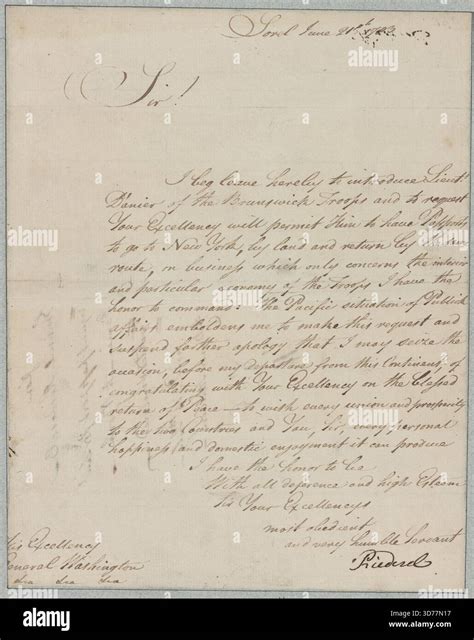 Sorel June 21st 1783
Sir!
I beg leave hereby to introduce Lieut.
D'anier of the Brunswick Troops and to request
Your Excellency will permit Him to have Passports
to go to New York, by land and return by
route, on business which only concerns the interior
and particular economy of the Troops I have the
honor to command. The Pacific situation of Publick
affairs emboldens me to make this request and
suspend farther apology that I may seize the
occasion, before my departure from this Continent, of
congratulating with Your Excellency on the blessed
return of Peace. I wish every union and prosperity
to the two Countries and You, Sir, every personal
happiness and domestic enjoyment it can produce
I have the honor to be
With all deference and high Esteem
Sir Your Excellencys
most obedient
and very humble Servant
Riedesel
His Excellency
General Washington
&ca &ca &ca
alamy
Image ID: 3D77N17
www.alamy.com